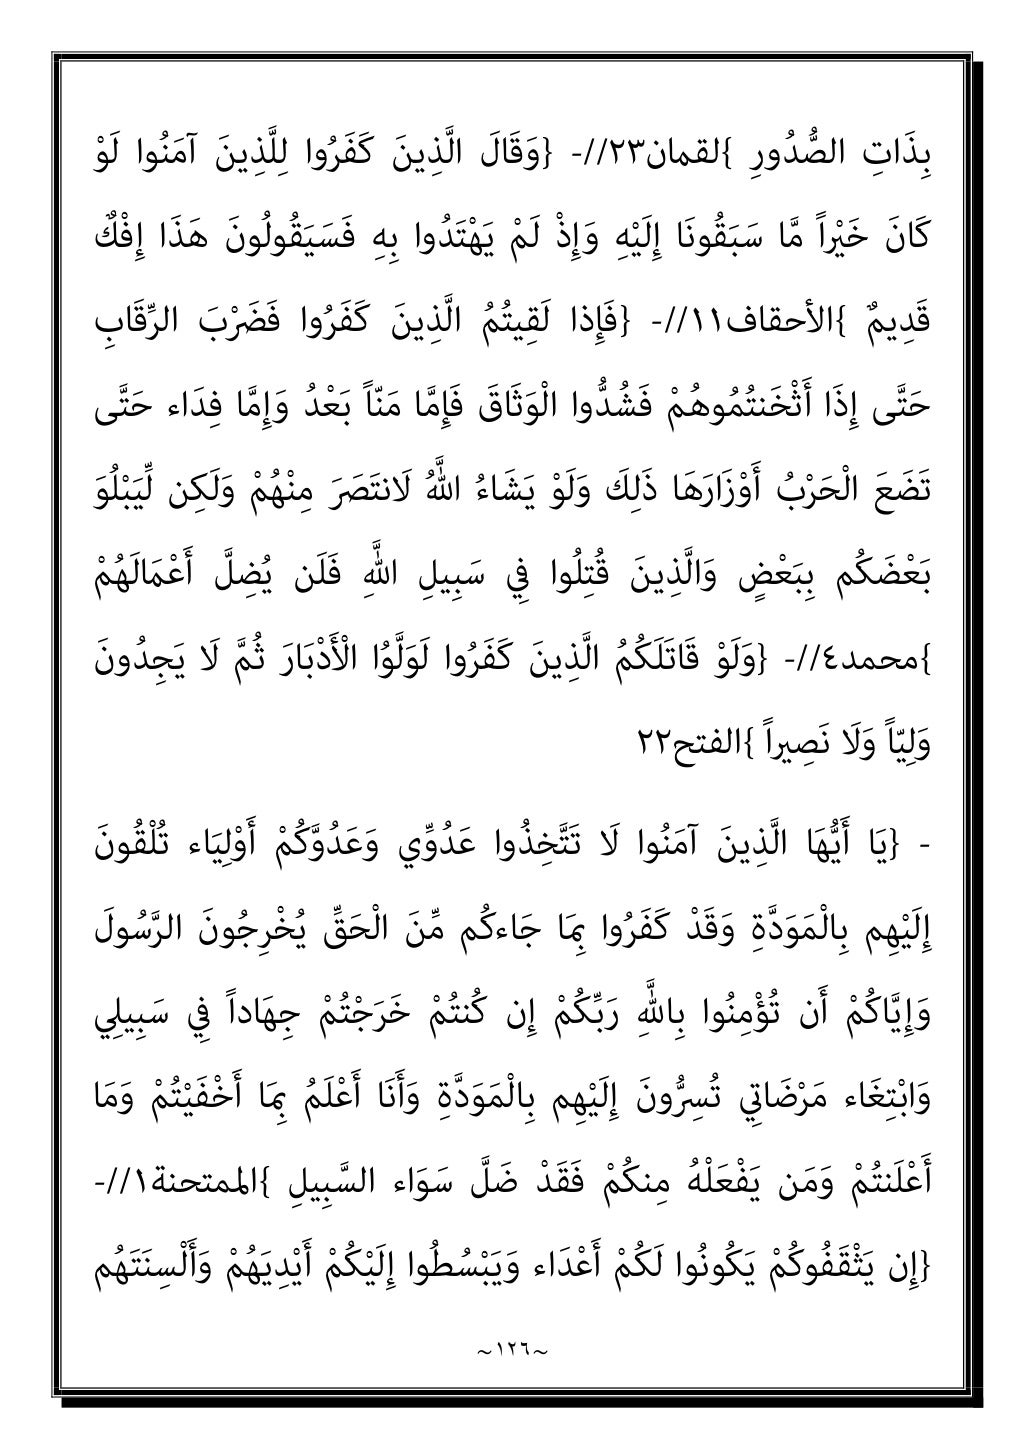 بِذَاتِ الصُّدُورِ }لقمان٢٣//- {وَقَالَ الَّذِينَ كَفَرُوا لِلَّذِينَ آمَنُوا لَوْ
كَانَ خَيْراً مَّا سَبَقُونَا إِلَيْهِ وَإِذْ لَمْ يَهْتَدُوا بِهِ فَسَيَقُولُونَ هَذَا إِفْكٌ
قَدِيمٌ }الأحقاف١١//- {فَإِذا لَقِيتُمُ الَّذِينَ كَفَرُوا فَضَرْبَ الرِّقَابِ
حَتَّى إِذَا أَثْخَنتُمُوهُمْ فَشُدُّوا الْوَثَاقَ فَإِمَّا مَنّاً بَعْدُ وَإِمَّا فِدَاء حَتَّى
تَضَعَ الْحَرْبُ أَوْزَارَهَا ذَلِكَ وَلَوْ يَشَاءُ اللَّهُ لَانتَصَرَ مِنْهُمْ وَلَكِن لِّيَبْلُوَ
بَعْضَكُم بِبَعْضٍ وَالَّذِينَ قُتِلُوا فِي سَبِيلِ اللَّهِ فَلَن يُضِلَّ أَعْمَالَهُمْ
}محمد٤//- {وَلَوْ قَاتَلَكُمُ الَّذِينَ كَفَرُوا لَوَلَّوُا الْأَدْبَارَ ثُمَّ لَا يَجِدُونَ
وَلِيّاً وَلَا نَصِيراً }الفتح٢٢
- {يَا أَيُّهَا الَّذِينَ آمَنُوا لَا تَتَّخِذُوا عَدُوِّي وَعَدُوَّكُمْ أَوْلِيَاء تُلْقُونَ
إِلَيْهِم بِالْمَوَدَّةِ وَقَدْ كَفَرُوا بِمَا جَاءكُم مِّنَ الْحَقِّ يُخْرِجُونَ الرَّسُولَ
وَإِيَّاكُمْ أَن تُؤْمِنُوا بِاللَّهِ رَبِّكُمْ إِن كُنتُمْ خَرَجْتُمْ جِهَاداً فِي سَبِيلِي
وَابْتِغَاء مَرْضَاتِي تُسِرُّونَ إِلَيْهِم بِالْمَوَدَّةِ وَأَنَا أَعْلَمُ بِمَا أَخْفَيْتُمْ وَمَا
أَعْلَنتُمْ وَمَن يَفْعَلْهُ مِنكُمْ فَقَدْ ضَلَّ سَوَاء السَّبِيلِ }الممتحنة١//-
{إِن يَثْقَفُوكُمْ يَكُونُوا لَكُمْ أَعْدَاء وَيَبْسُطُوا إِلَيْكُمْ أَيْدِيَهُمْ وَأَلْسِنَتَهُم
~١٢٦~